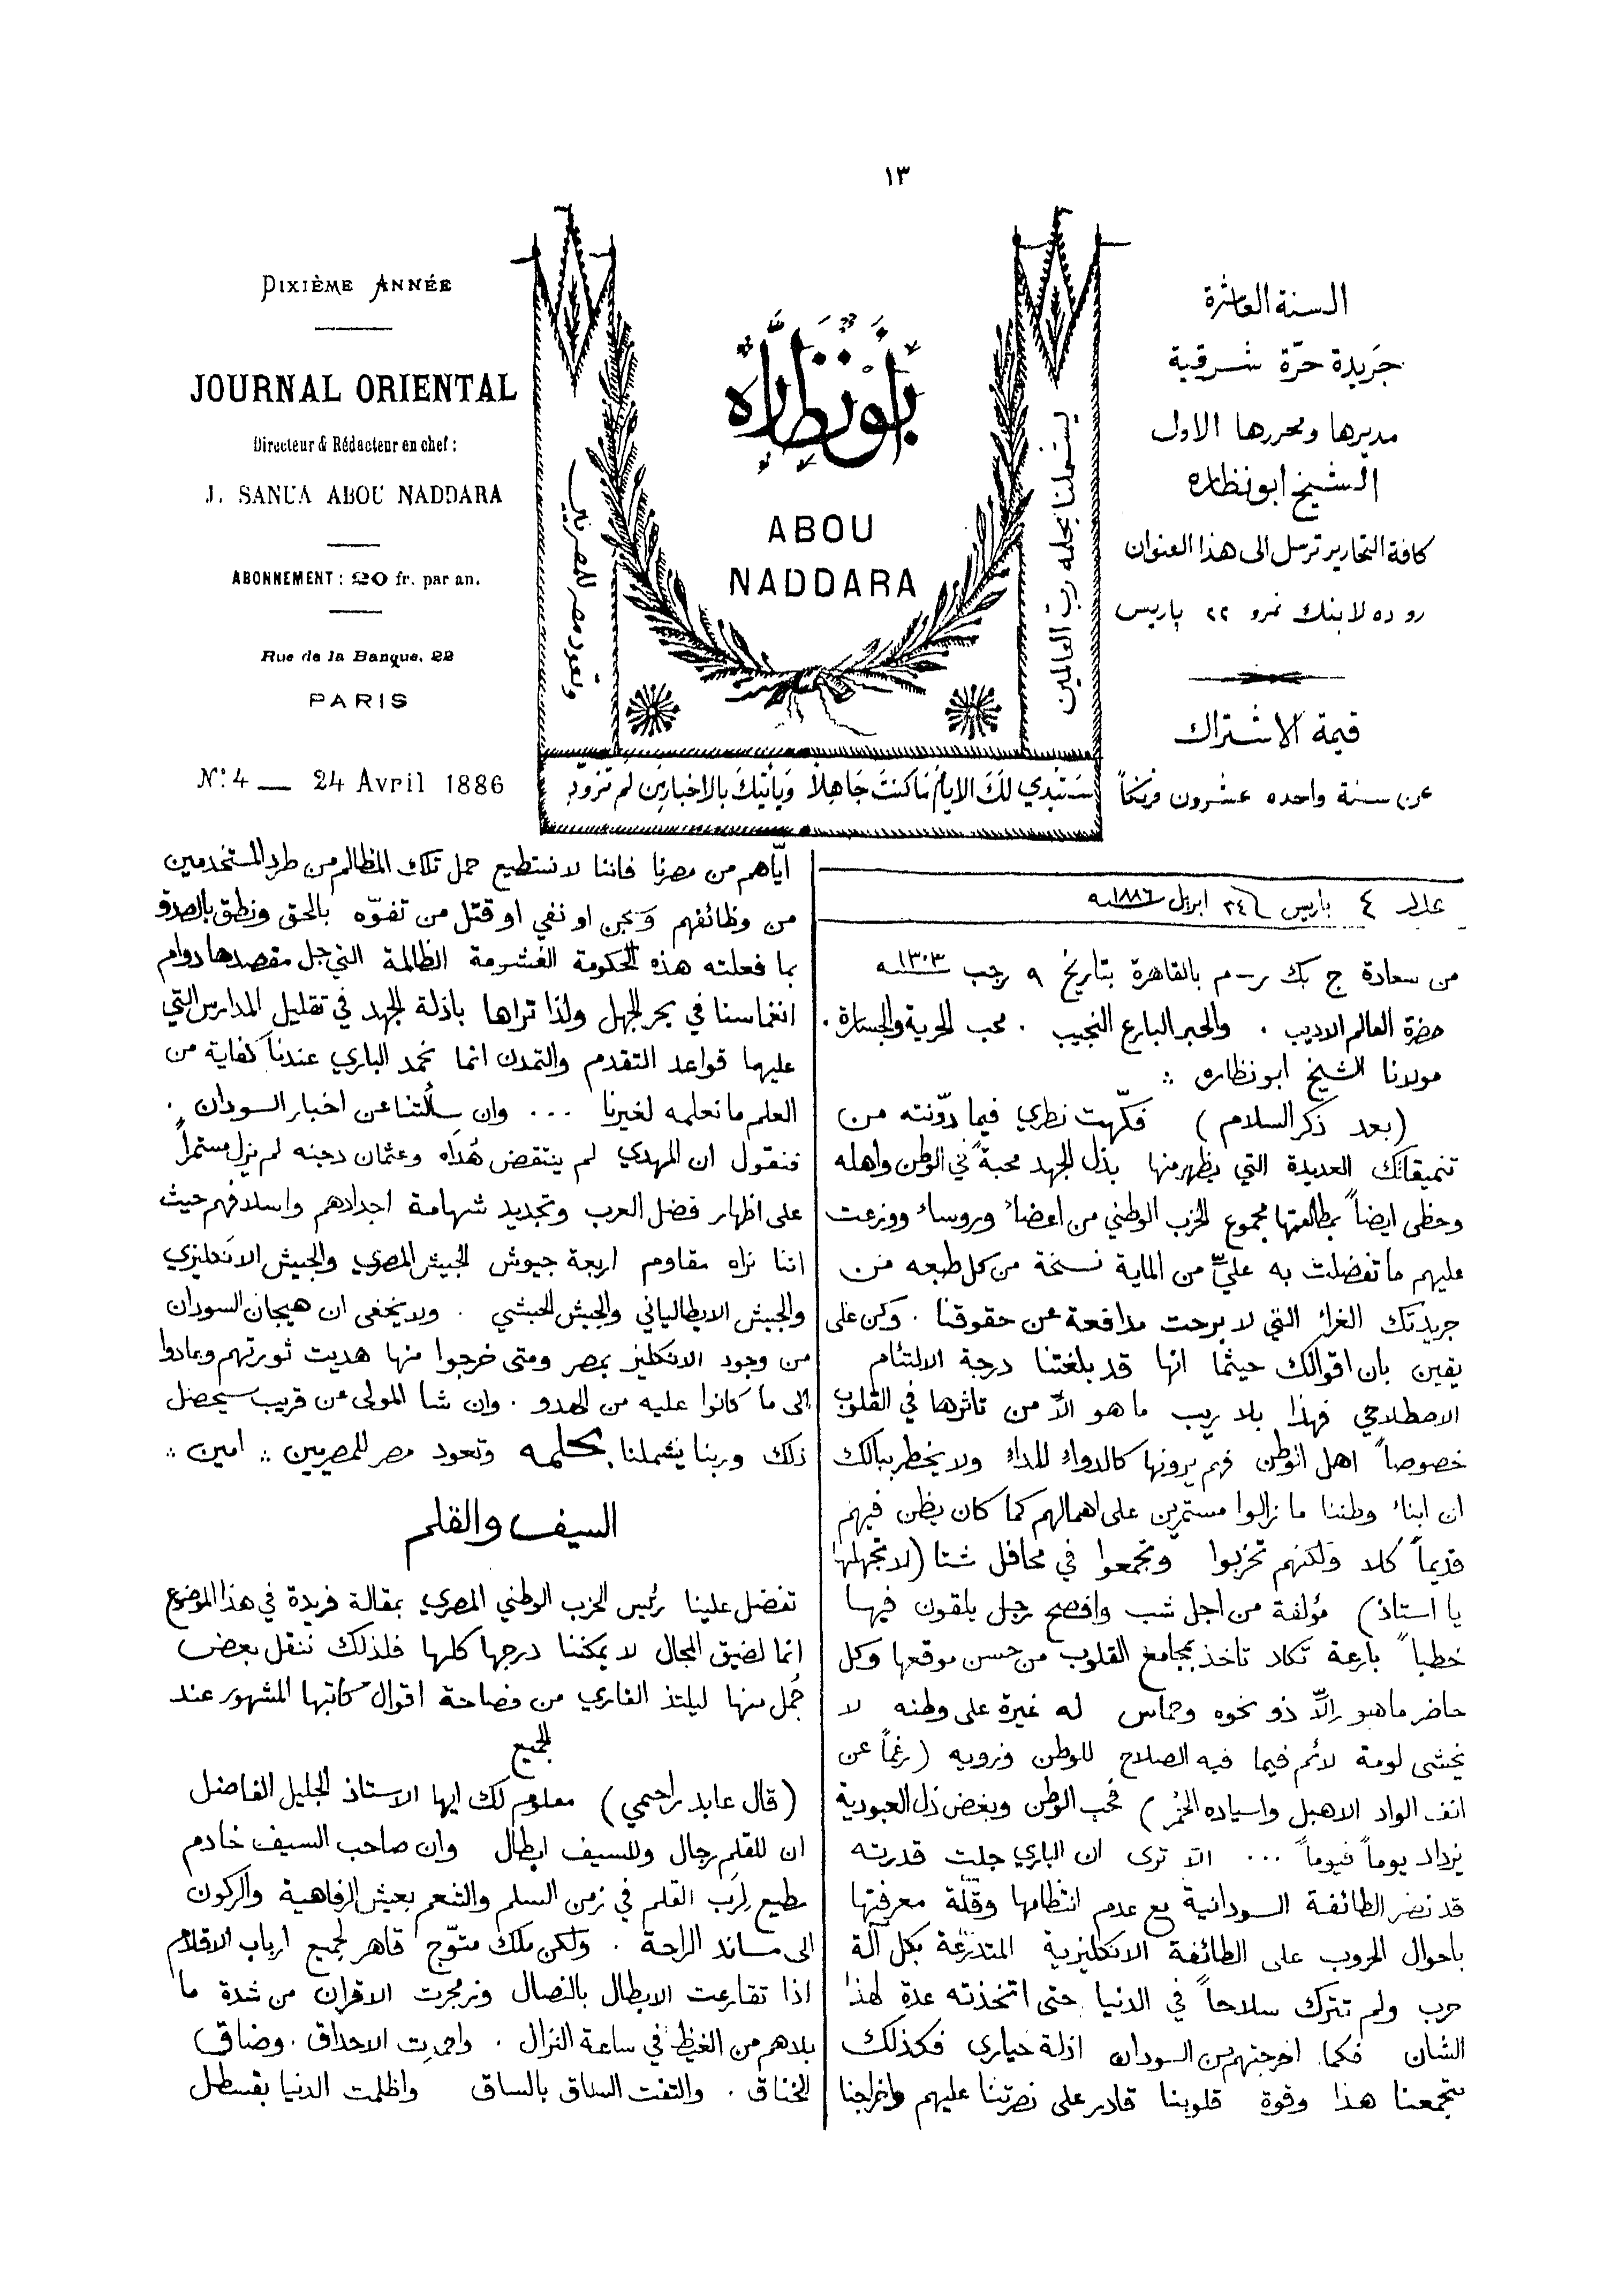 ١٣
DIXIÈME ANNÉE
JOURNAL ORIENTAL
Directeur & Rédacteur en chef :
J. SANUA ABOU NADDARA
ABONNEMENT : 20 fr. par an.
Rue de la Banque, 22
PARIS
Nº 4 — 24 Avril 1886
ابو نظاره
ABOU
NADDARA
يشملنا بحلمه رب العالمين
وتعود مصر للمصريين
ستبدي لك الايام ما كنت جاهلا ويأتيك بالاخبار من لم تزود
السنة العاشرة
جريدة حرّة شرقية
مديرها ومحررها الاول
الشيخ ابو نظاره
كافة التحارير ترسل الى هذا العنوان
رو ده لا بنك نمرو ٢٢ پاريس
قيمة الاشتراك
عن سنة واحده عشرون فرنكاً
عدد ٤ باريس ٢٤ ابريل سنة ١٨٨٦
من سعادة ج بك ر–م بالقاهرة بتاريخ ٩ رجب سنة ١٣٠٣
حضرة العالم الاديب . والحبر البارع النجيب . محب الحرية والجسارة .
مولانا الشيخ ابو نظاره
(بعد ذكر السلام) فكّهت نظري فيما دوّنته من
تنميقاتك العديدة التي يظهر منها بذل الجهد محبةً في الوطن واهله
وحظى ايضاً بمطالعتها مجموع الحزب الوطني من اعضاء وروساء ووزعت
عليهم ما تفضلت به عليّ من الماية نسخة من كل طبعه من
جريدتك الغراء التي لا برحت مدافعة عن حقوقنا . وكن على
يقين بان اقوالك حيثما انها قد بلغتنا درجة الالتئام
الاصطلاحي فهذا بلا ريب ما هو الّا من تاثرها في القلوب
خصوصاً اهل الوطن فهم يرونها كالدواء للداء ولا يخطر ببالك
ان ابناء وطننا ما زالوا مستمرين على اهمالهم كما كان يظن فيهم
قديماً كلا ولكنهم تحزبوا وتجمعوا في محافل شتا (لا تجهلها
يا استاذ) مؤلفة من اجل شب وافصح رجل يلقون فيها
خطباً بارعة تكاد تاخذ بمجامع القلوب من حسن موقعها وكل
حاضر ما هو الّا ذو نخوه وحماس له غيرة على وطنه لا
يخشى لومة لائم فيما فيه الصلاح للوطن وذويه (رغماً عن
انف الواد الاهبل واسياده الحُمر) فحب الوطن وبغض ذل العبودية
يزداد يوماً فيوماً ... الا ترى ان الباري جلت قدرته
قد نصر الطائفة السودانية مع عدم انتظامها وقلّة معرفتها
باحوال الحروب على الطائفة الانكليزية المتدرّعة بكل آلة
حرب ولم تترك سلاحاً في الدنيا حتى اتخذته عدة لهذا
الشان فكما اخرجتهم من السودان اذلة حيارى فكذلك
تجمعنا هذا وقوة قلوبنا قادر على نصرتنا عليهم واخراجنا
ايّاهم من مصرنا فاننا لا نستطيع حمل تلك المظالم من طرد المستخدمين
من وظائفهم وسجن او نفي او قتل من تفوّه بالحق ونطق بالصدق
بما فعلته هذه الحكومة الغشومة الظالمة التي جل مقصدها دوام
انغماسنا في بحر الجهل ولذا تراها باذلة الجهد في تقليل المدارس التي
عليها قواعد التقدم والتمدن انما نحمد الباري عندنا كفاية من
العلم ما نعلمه لغيرنا ... وان سألتنا عن اخبار السودان .
فنقول ان المهدي لم ينتقض هُداه وعثمان دجنه لم يزل مستمراً
على اظهار فضل العرب وتجديد شهامة اجدادهم واسلافهم حيث
اننا نراه مقاوم اربعة جيوش الجيش المصري والجيش الانكليزي
والجيش الايطالياني والجيش الحبشي . ولا يخفى ان هيجان السودان
من وجود الانكليز بمصر ومتى خرجوا منها هديت ثورتهم وعادوا
الى ما كانوا عليه من الهدو . وان شا المولى عن قريب سيحصل
ذلك وربنا يشملنا بحلمه وتعود مصر للمصريين امين
السيف والقلم
تفضل علينا رئيس الحزب الوطني المصري بمقالة فريدة في هذا الموضوع
انما لضيق المجال لا يمكننا درجها كلها فلذلك ننقل بعض
جُمل منها ليلتذ القاري من فصاحة اقوال كاتبها المشهور عند
الجميع
(قال عابد راحمي) معلوم لك ايها الاستاذ الجليل الفاضل
ان للقلم رجال وللسيف ابطال وان صاحب السيف خادم
مطيع لرب القلم في زمن السلم والتنعم بعيش الرفاهية والركون
الى مساند الراحة . ولكن ملك متوّج قاهر لجميع ارباب الاقلام
اذا تقارعت الابطال بالنصال وزمجرت الاقران من شدة ما
بلاهم من الغيظ في ساعة النزال . واحمرت الاحداق . وضاق
الخناق . والتفت الساق بالساق واظلمت الدنيا بقسطل